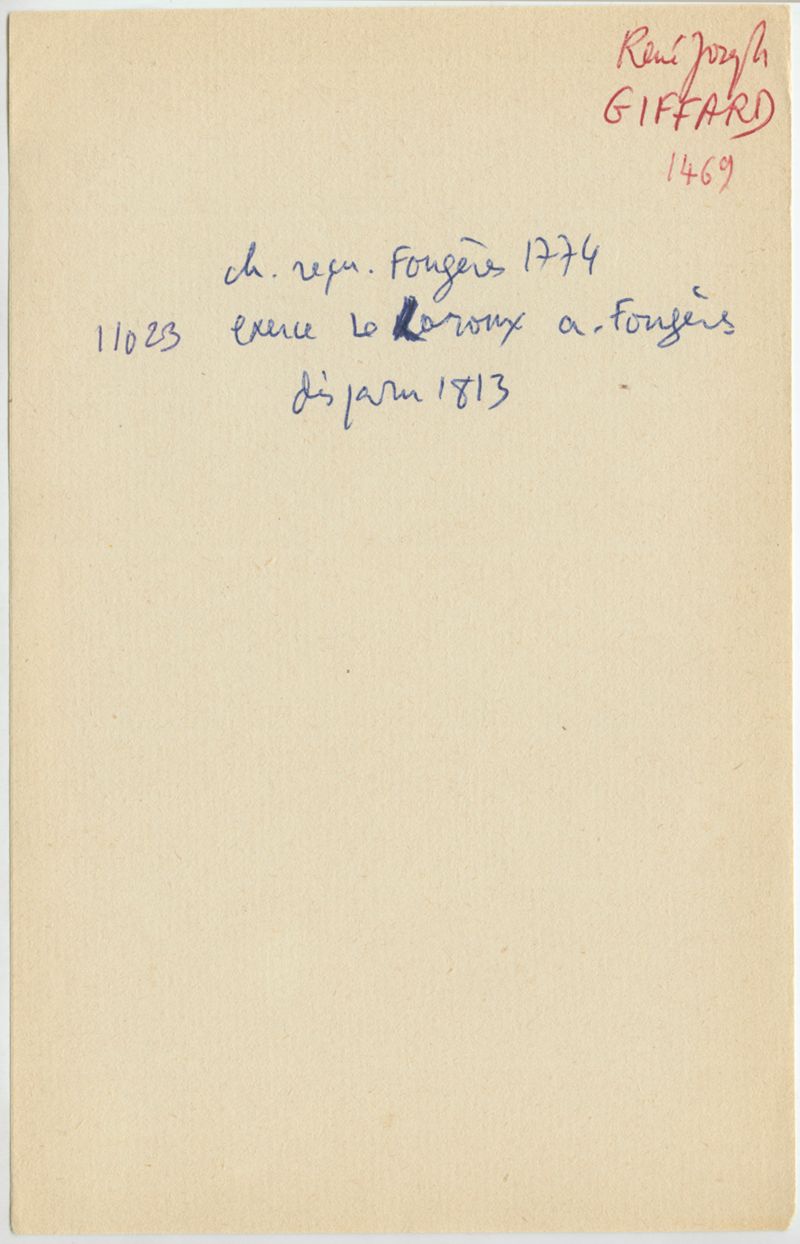 René Joseph
GIFFARD
1469
ch. reçu. Fougères 1774
11023 exerce Le Loroux a. Fougères
disparu 1813